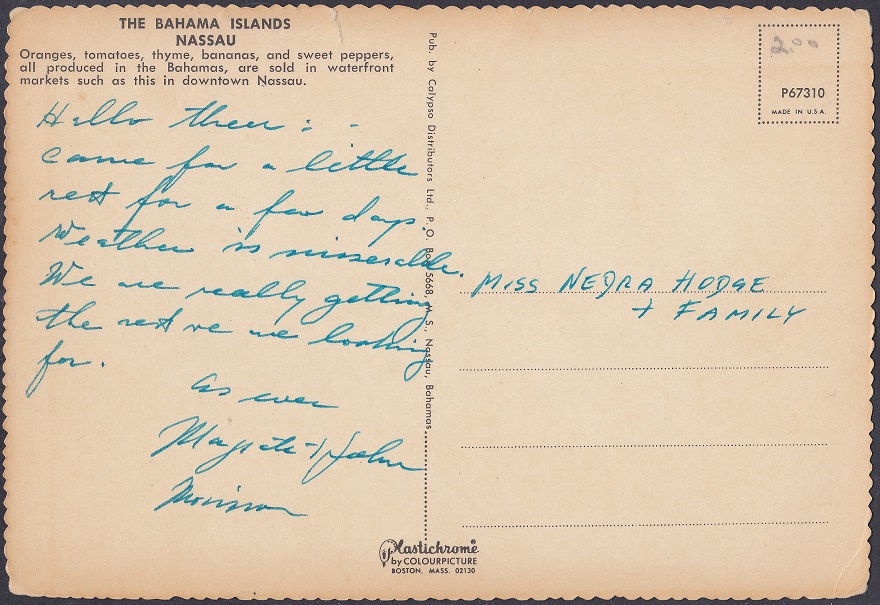 THE BAHAMA ISLANDS
NASSAU
Oranges, tomatoes, thyme, bananas, and sweet peppers,
all produced in the Bahamas, are sold in waterfront
markets such as this in downtown Nassau.
Hello there : -
Came for a little
rest for a few days.
Weather is miserable.
We are really getting
the rest we are looking
for.
As ever
+ John
Pub. by Calypso Distributors Ltd., P.O. Box 5668, M.S., Nassau, Bahamas
2.00
P67310
MADE IN U.S.A.
MISS NEDRA HODGE
+ FAMILY
Plastichrome®
by COLOURPICTURE
BOSTON, MASS. 02130